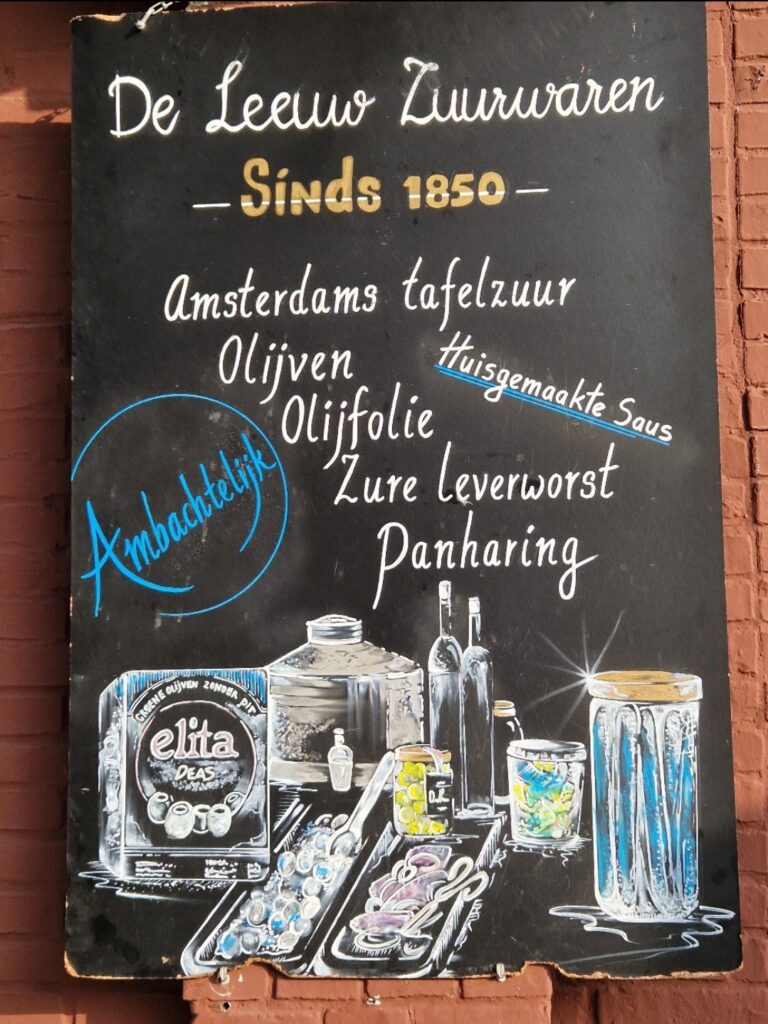 De Leeuw Zuurwaren
— Sinds 1850 —
Amsterdams tafelzuur
Olijven
Huisgemaakte Saus
Olijfolie
Zure leverworst
Panharing
Ambachtelijk
GROENE OLIJVEN ZONDER PIT
elita
DEAS